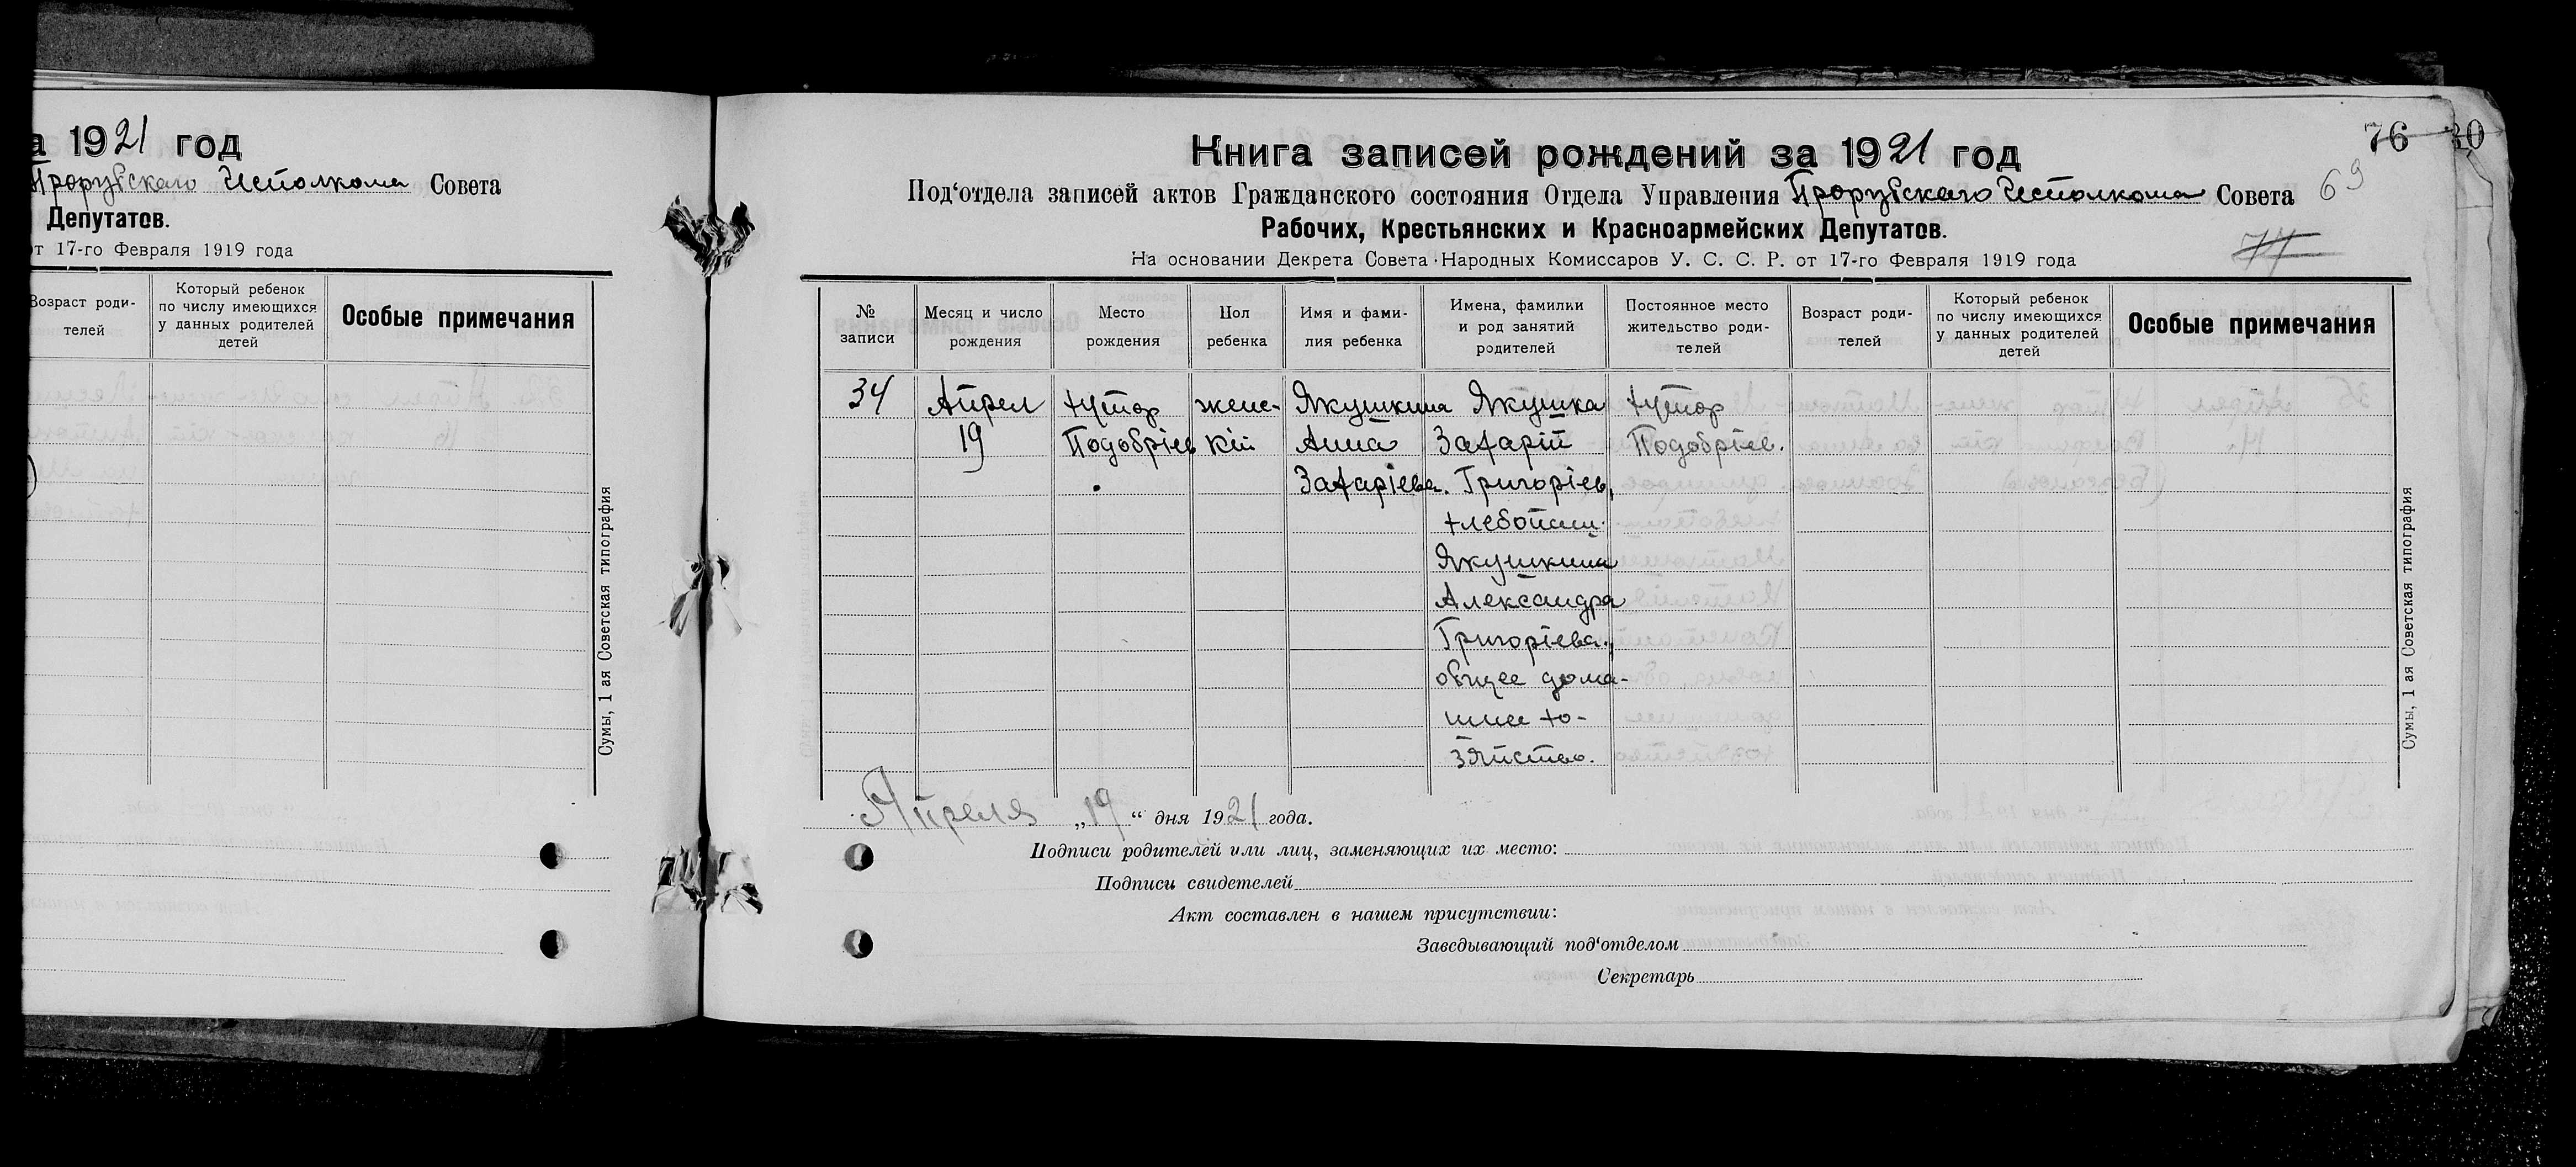 а 1921 год
Прорубского Исполкома Совета
Депутатов.
от 17-го Февраля 1919 года
Возраст роди-
телей
Который ребенок
по числу имеющихся
у данных родителей
детей
Особые примечания
Сумы, 1 ая Советская типография
76
30
69
77
Книга записей рождений за 1921 год
Под‘отдела записей актов Гражданского состояния Отдела Управления Прорубского Исполкома Совета
Рабочих, Крестьянских и Красноармейских Депутатов.
На основании Декрета Совета Народных Комиссаров У. С. С. Р. от 17-го Февраля 1919 года
№
записи
Месяц и число
рождения
Место
рождения
Пол
ребенка
Имя и фами-
лия ребенка
Имена, фамилии
и род занятий
родителей
Постоянное место
жительство роди-
телей
Возраст роди-
телей
Который ребенок
по числу имеющихся
у данных родителей
детей
Особые примечания
34
Апрел
19
хутор
Подобріев
женс-
кій
Якушкина
Анна
Захаріева.
Якушка
Захарій
Григоріев,
хлебопаш.
Якушкина
Александра
Григоріева.,
общее дома-
шнее хо-
зяйство.
хутор
Подобріев.
Сумы, 1 ая Советская типография
Апреля „19“ дня 1921 года.
Подписи родителей или лиц, заменяющих их место:
Подписи свидетелей
Акт составлен в нашем присутствии:
Заведывающий под‘отделом
Секретарь